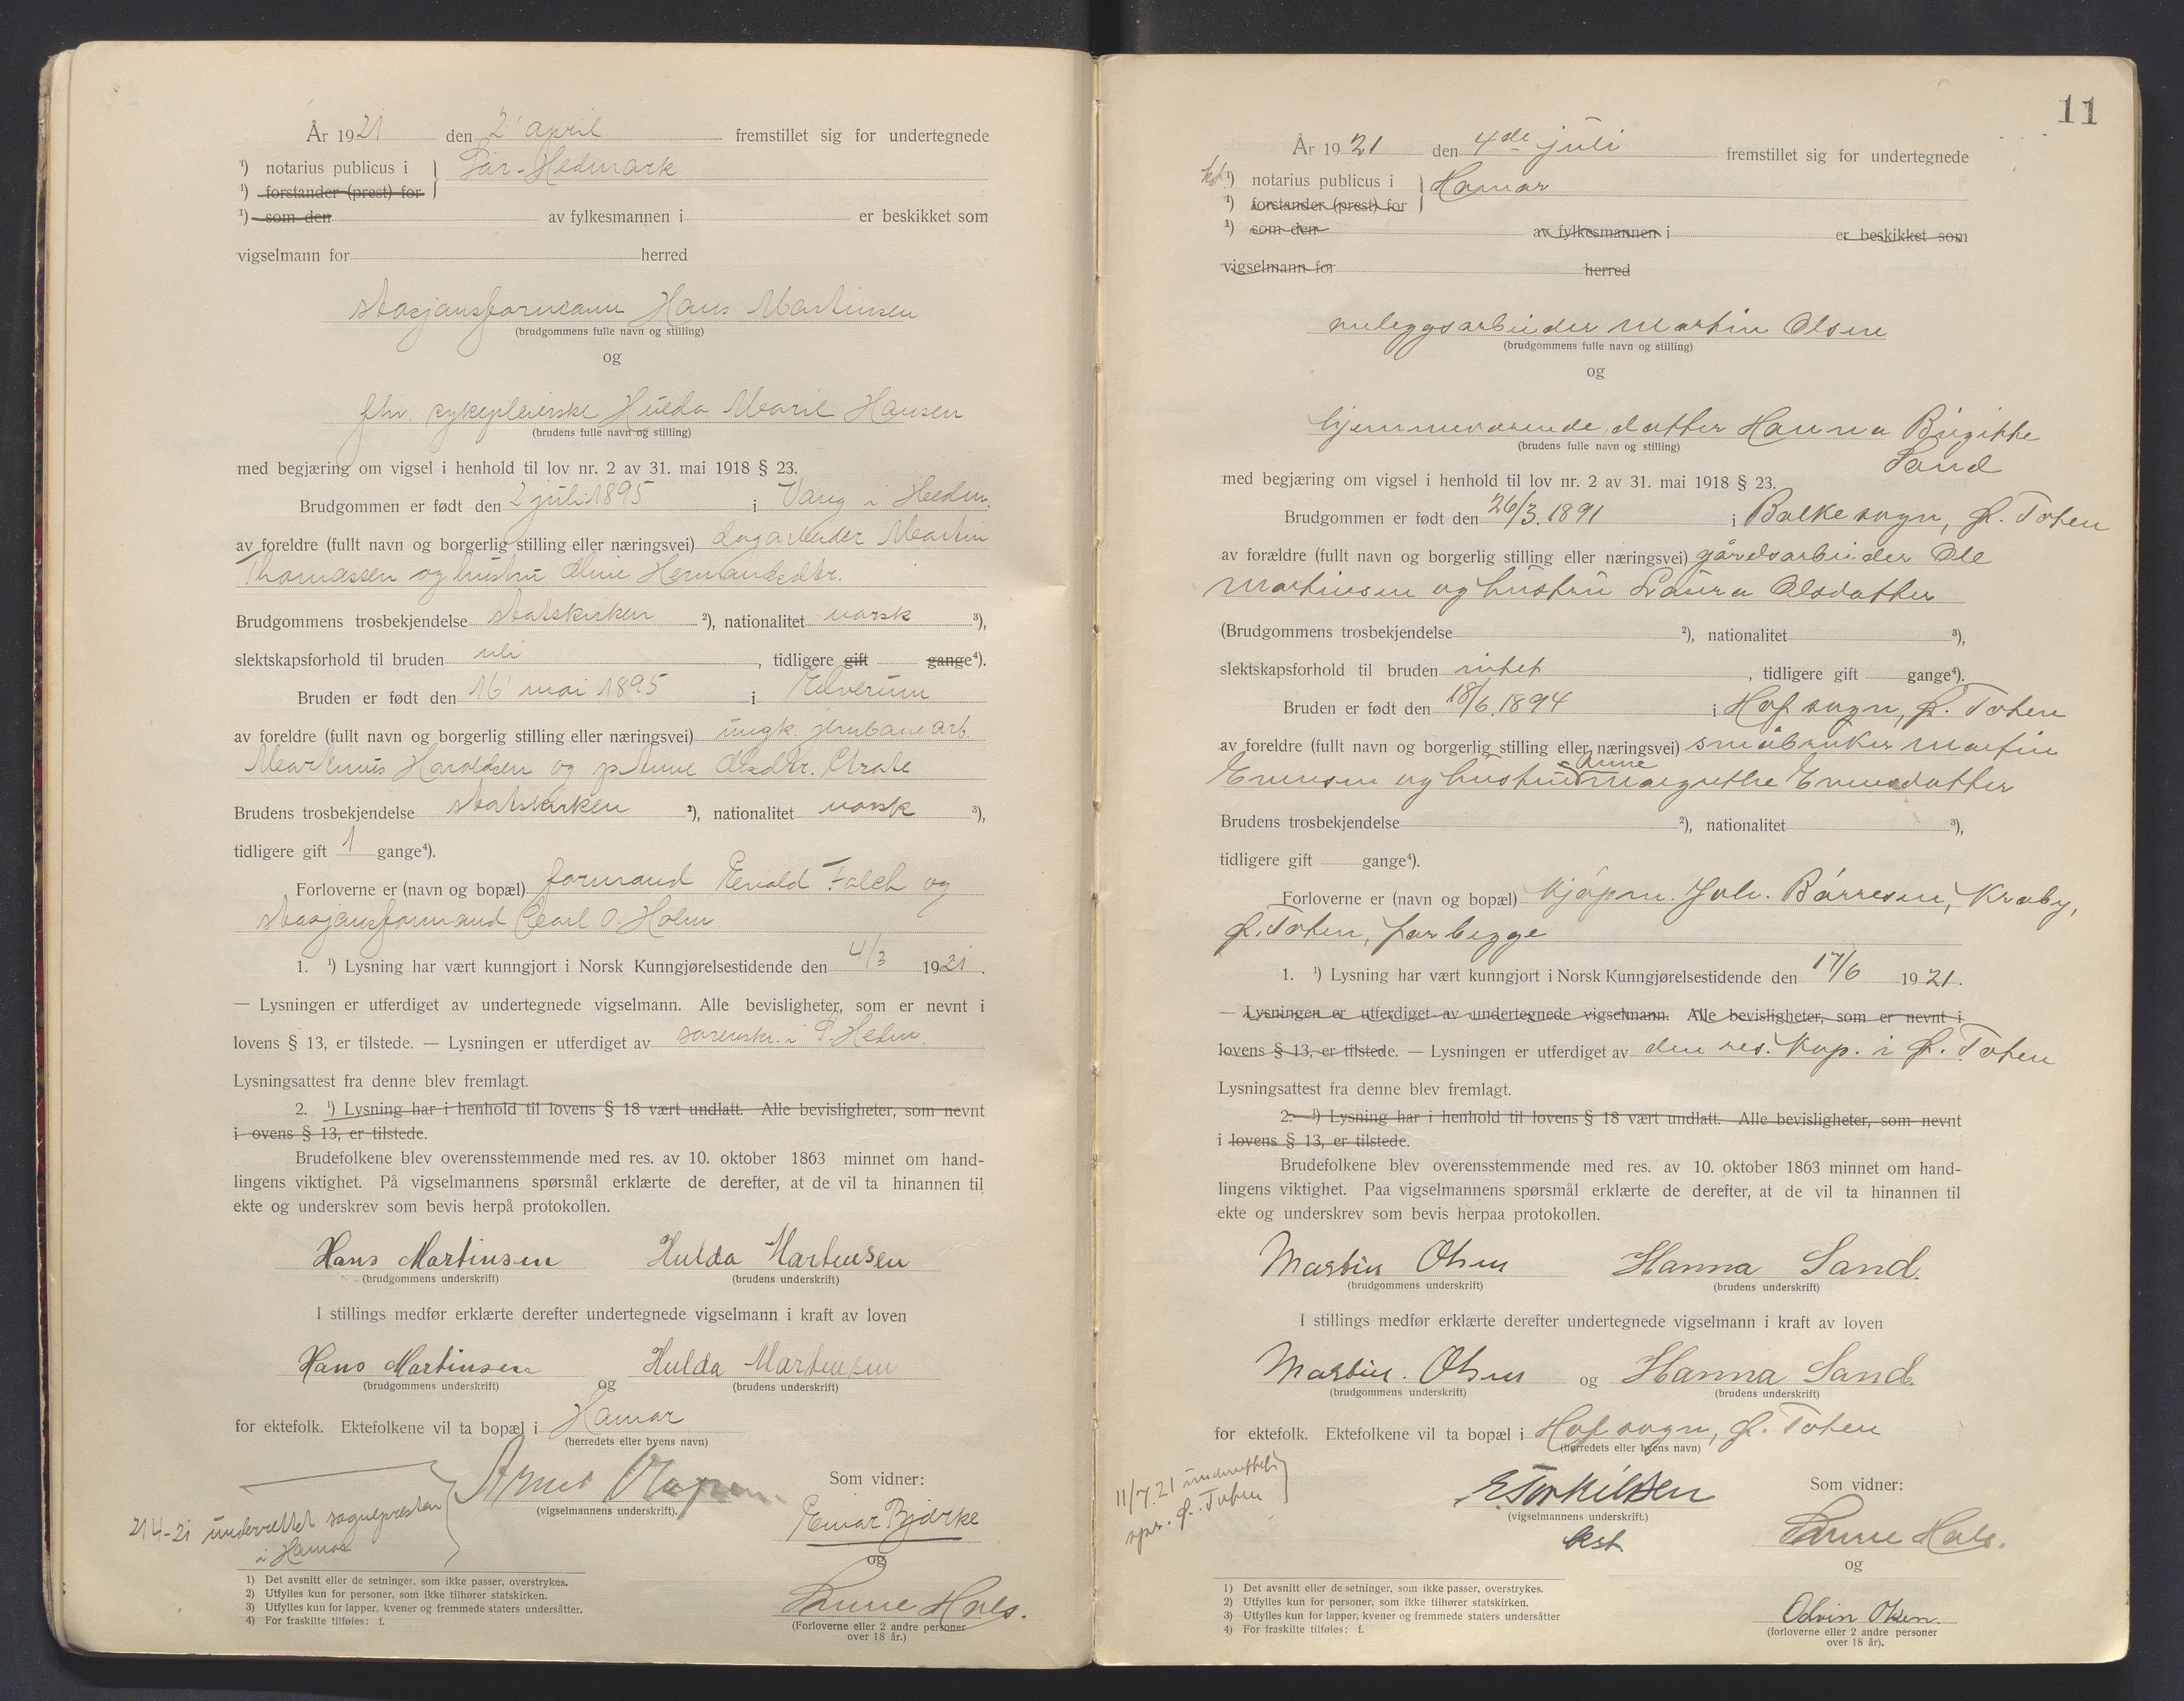 År 1921 den 2' april fremstillet sig for undertegnede
¹) notarius publicus i } Sør-Hedmark
¹) forstander (prest) for
¹) som den av fylkesmannen i er beskikket som
vigselmann for herred
stasjonsformann Hans Martinsen
(brudgommens fulle navn og stilling)
og
fhv. sykepleierske Hulda Marie Hansen
(brudens fulle navn og stilling)
med begjæring om vigsel i henhold til lov nr. 2 av 31. mai 1918 § 23.
Brudgommen er født den 2 juli 1895 i Vang i Hedm.
av foreldre (fullt navn og borgerlig stilling eller næringsvei) dagarbeider Martin
Thomassen og hustru Oline Hermandsdtr.
Brudgommens trosbekjendelse statskirken ²), nationalitet norsk ³),
slektskapsforhold til bruden uli , tidligere gift gange⁴).
Bruden er født den 16' mai 1895 i Elverum
av foreldre (fullt navn og borgerlig stilling eller næringsvei) ungk. jernbanearb.
Martinus Haroldsen og p. Anne Olsdtr.
Brudens trosbekjendelse statskirken ²), nationalitet norsk ³),
tidligere gift 1 gange⁴).
Forloverne er (navn og bopæl) formand Evald Falch og
stasjonsformand Carl O. Holm
1. ¹) Lysning har vært kunngjort i Norsk Kunngjørelsestidende den 4/3 1921.
— Lysningen er utferdiget av undertegnede vigselmann. Alle bevisligheter, som er nevnt i
lovens § 13, er tilstede. — Lysningen er utferdiget av sorenskr. i S. Hedm.
Lysningsattest fra denne blev fremlagt.
2. ¹) Lysning har i henhold til lovens § 18 vært undlatt. Alle bevisligheter, som nevnt
i ovens § 13, er tilstede.
Brudefolkene blev overensstemmende med res. av 10. oktober 1863 minnet om hand-
lingens viktighet. På vigselmannens spørsmål erklærte de derefter, at de vil ta hinannen til
ekte og underskrev som bevis herpå protokollen.
Hans Martinsen Hulda Martinsen
(brudgommens underskrift) (brudens underskrift)
I stillings medfør erklærte derefter undertegnede vigselmann i kraft av loven
Hans Martinsen og Hulda Martinsen
(brudgommens underskrift) (brudens underskrift)
for ektefolk. Ektefolkene vil ta bopæl i Hamar
(herredets eller byens navn)
Som vidner:
(vigselmannens underskrift).
Einar Bjørke
2/4-21 underrettet sognepresten
i Hamar
og
Hals.
(Forloverne eller 2 andre personer
over 18 år.)
1) Det avsnitt eller de setninger, som ikke passer, overstrykes.
2) Utfylles kun for personer, som ikke tilhører statskirken.
3) Utfylles kun for lapper, kvener og fremmede staters undersåtter.
4) For fraskilte tilføies: f.
11
År 1921 den 4de juli fremstillet sig for undertegnede
kst. ¹) notarius publicus i } Hamar
¹) forstander (prest) for
¹) som den av fylkesmannen i er beskikket som
vigselmann for herred
anleggsarbeider Martin Olsen
(brudgommens fulle navn og stilling)
og
hjemmeværende datter Hanna Birgitte
(brudens fulle navn og stilling)
Sand
med begjæring om vigsel i henhold til lov nr. 2 av 31. mai 1918 § 23.
Brudgommen er født den 26/3. 1891 i Balke sogn, Ø. Toten
av forældre (fullt navn og borgerlig stilling eller næringsvei) gårdsarbeider Ole
Martinsen og hustru Laura Olsdatter
(Brudgommens trosbekjendelse ²), nationalitet ³),
slektskapsforhold til bruden intet , tidligere gift gange⁴).
Bruden er født den 18/6. 1894 i Hof sogn, Ø. Toten
av foreldre (fullt navn og borgerlig stilling eller næringsvei) småbruker Martin
Evensen og hustru Anne Margrethe Evensdatter
Brudens trosbekjendelse ²), nationalitet ³),
tidligere gift gange⁴).
Forloverne er (navn og bopæl) kjøpm. Joh. Børresen, Kraby,
Ø. Toten, for begge
1. ¹) Lysning har vært kunngjort i Norsk Kunngjørelsestidende den 17/6 1921.
— Lysningen er utferdiget av undertegnede vigselmann. Alle bevisligheter, som er nevnt i
lovens § 13, er tilstede. — Lysningen er utferdiget av den res. kap. i Ø. Toten
Lysningsattest fra denne blev fremlagt.
2. ¹) Lysning har i henhold til lovens § 18 vært undlatt. Alle bevisligheter, som nevnt
i lovens § 13, er tilstede.
Brudefolkene blev overensstemmende med res. av 10. oktober 1863 minnet om hand-
lingens viktighet. Paa vigselmannens spørsmål erklærte de derefter, at de vil ta hinannen til
ekte og underskrev som bevis herpaa protokollen.
Martin Olsen Hanna Sand.
(brudgommens underskrift) (brudens underskrift)
I stillings medfør erklærte derefter undertegnede vigselmann i kraft av loven
Martin. Olsen og Hanna Sand.
(brudgommens underskrift) (brudens underskrift)
for ektefolk. Ektefolkene vil ta bopæl i Hof sogn, Ø. Toten
(herredets eller byens navn)
11/7.21 underrettet
spr. Ø. Toten
E Torkildsen
(vigselmannens underskrift.)
kst.
Som vidner:
Hals.
og
Odvin Olsen.
(forloverne eller 2 andre personer
over 18 år).
1) Det avsnitt eller de setninger, som ikke passer, overstrykes.
2) Utfylles kun for personer, som ikke tilhører statskirken.
3) Utfylles kun for lapper, kvener og fremmede staters undersåtter
4) For fraskilte tilføies: f.